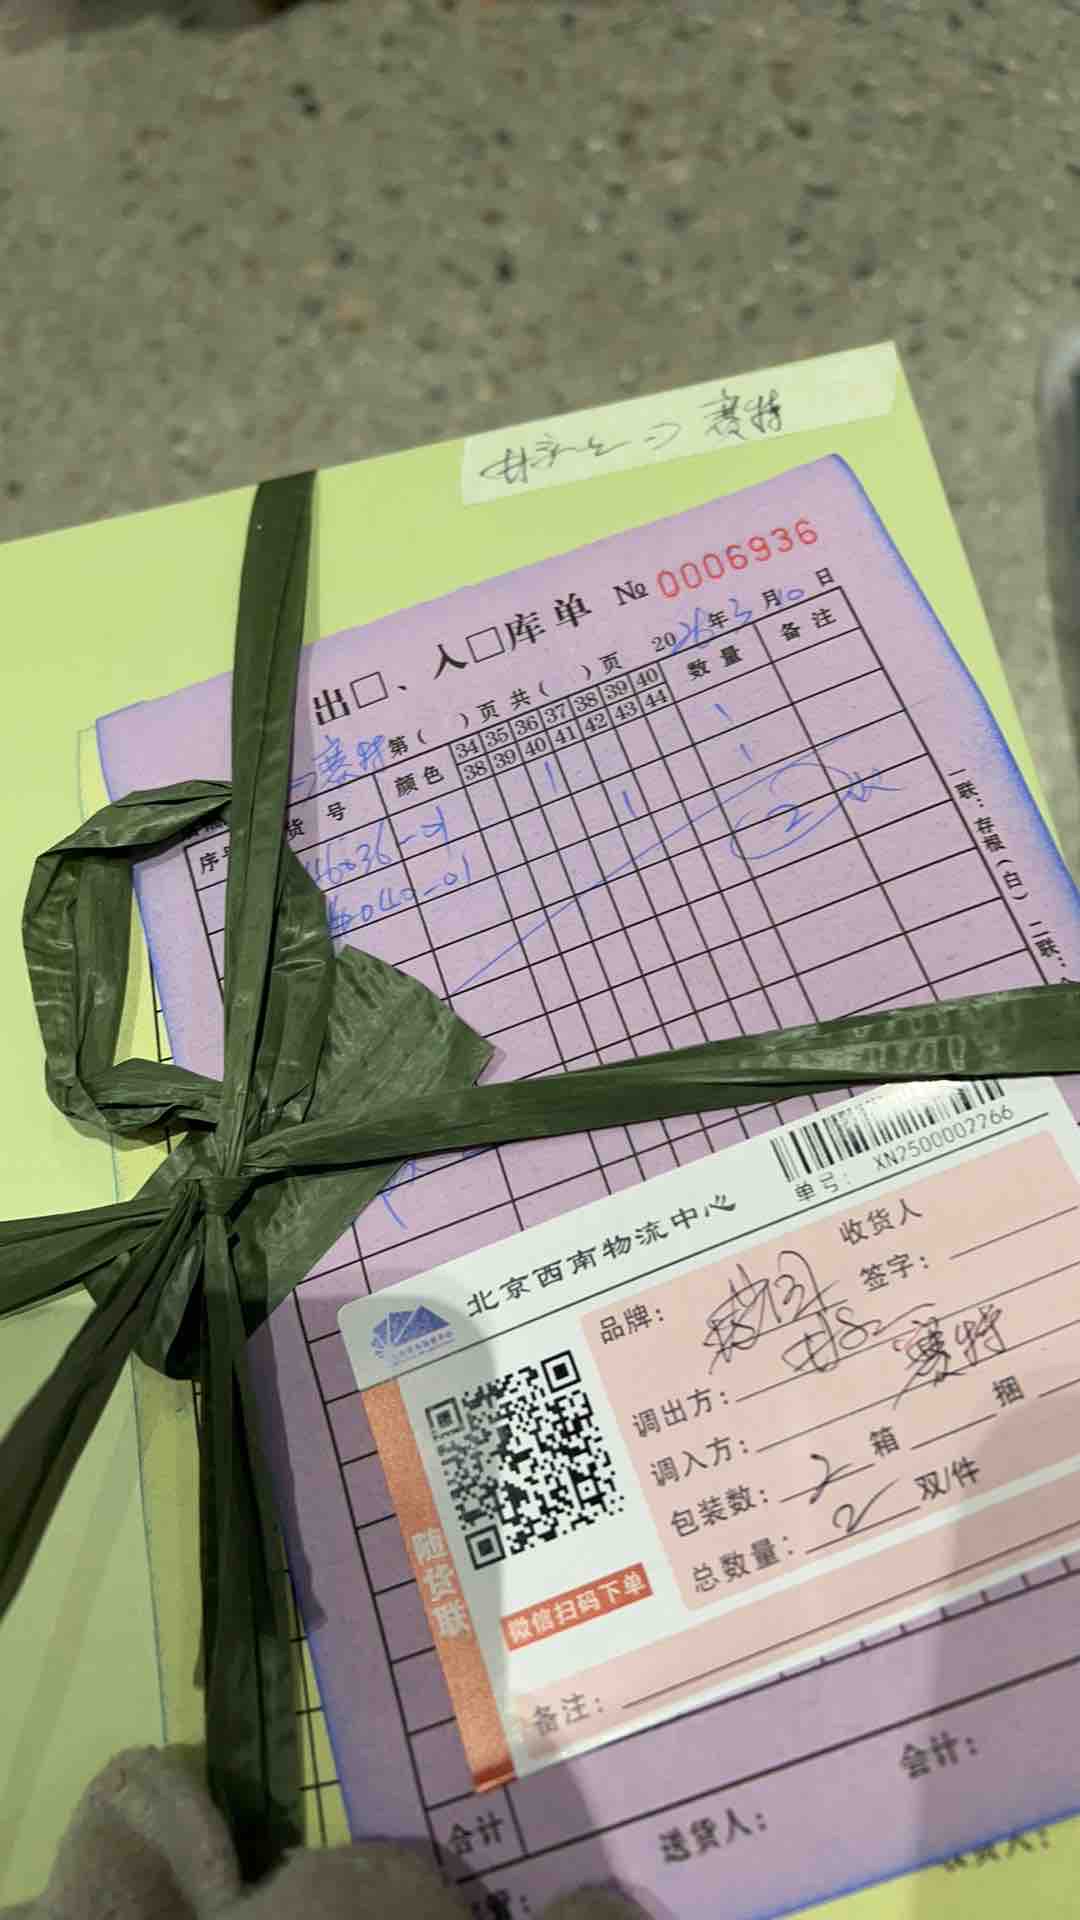 赛特
出口、入口库单 № 0006936
赛特 第( )页 共( )页 2026年3月10日
序号 货号 颜色 34 35 36 37 38 39 40 数量 备注
38 39 40 41 42 43 44
46036-01 1 1
4040-01 1 1
2双
一联：存根(白) 二联：
单号： XN2500002766
北京西南物流中心
收货人
品牌： 签字：
调出方：
调入方： 赛特
包装数： 2 箱 捆
总数量： 2 双/件
随货联
微信扫码下单
备注：
会计：
合计
送货人：
收货人：